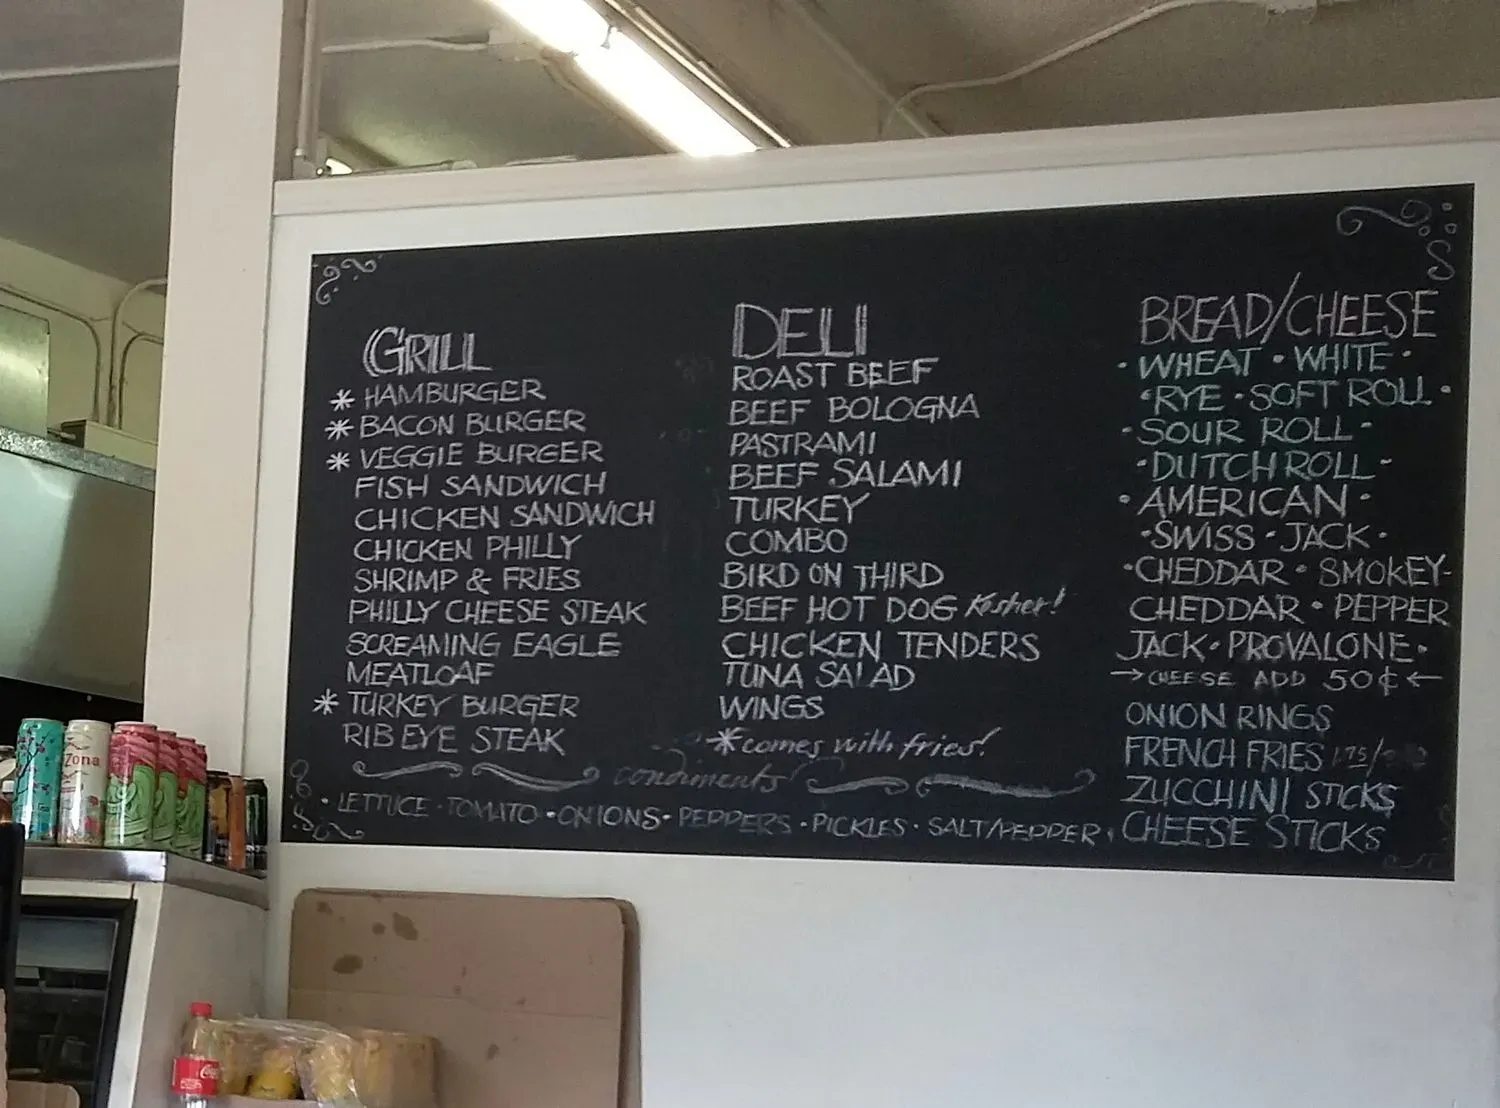 GRILL
* HAMBURGER
* BACON BURGER
* VEGGIE BURGER
FISH SANDWICH
CHICKEN SANDWICH
CHICKEN PHILLY
SHRIMP & FRIES
PHILLY CHEESE STEAK
SCREAMING EAGLE
MEATLOAF
* TURKEY BURGER
RIB EYE STEAK
DELI
ROAST BEEF
BEEF BOLOGNA
PASTRAMI
BEEF SALAMI
TURKEY
COMBO
BIRD ON THIRD
BEEF HOT DOG Kosher!
CHICKEN TENDERS
TUNA SALAD
WINGS
* comes with fries!
condiments
• LETTUCE • TOMATO • ONIONS • PEPPERS • PICKLES • SALT/PEPPER •
BREAD/CHEESE
• WHEAT • WHITE •
• RYE • SOFT ROLL •
• SOUR ROLL •
• DUTCH ROLL •
• AMERICAN •
• SWISS • JACK •
• CHEDDAR • SMOKEY-
CHEDDAR • PEPPER
JACK • PROVALONE •
→ CHEESE ADD 50¢ ←
ONION RINGS
FRENCH FRIES 1.75/
ZUCCHINI STICKS
CHEESE STICKS
zona